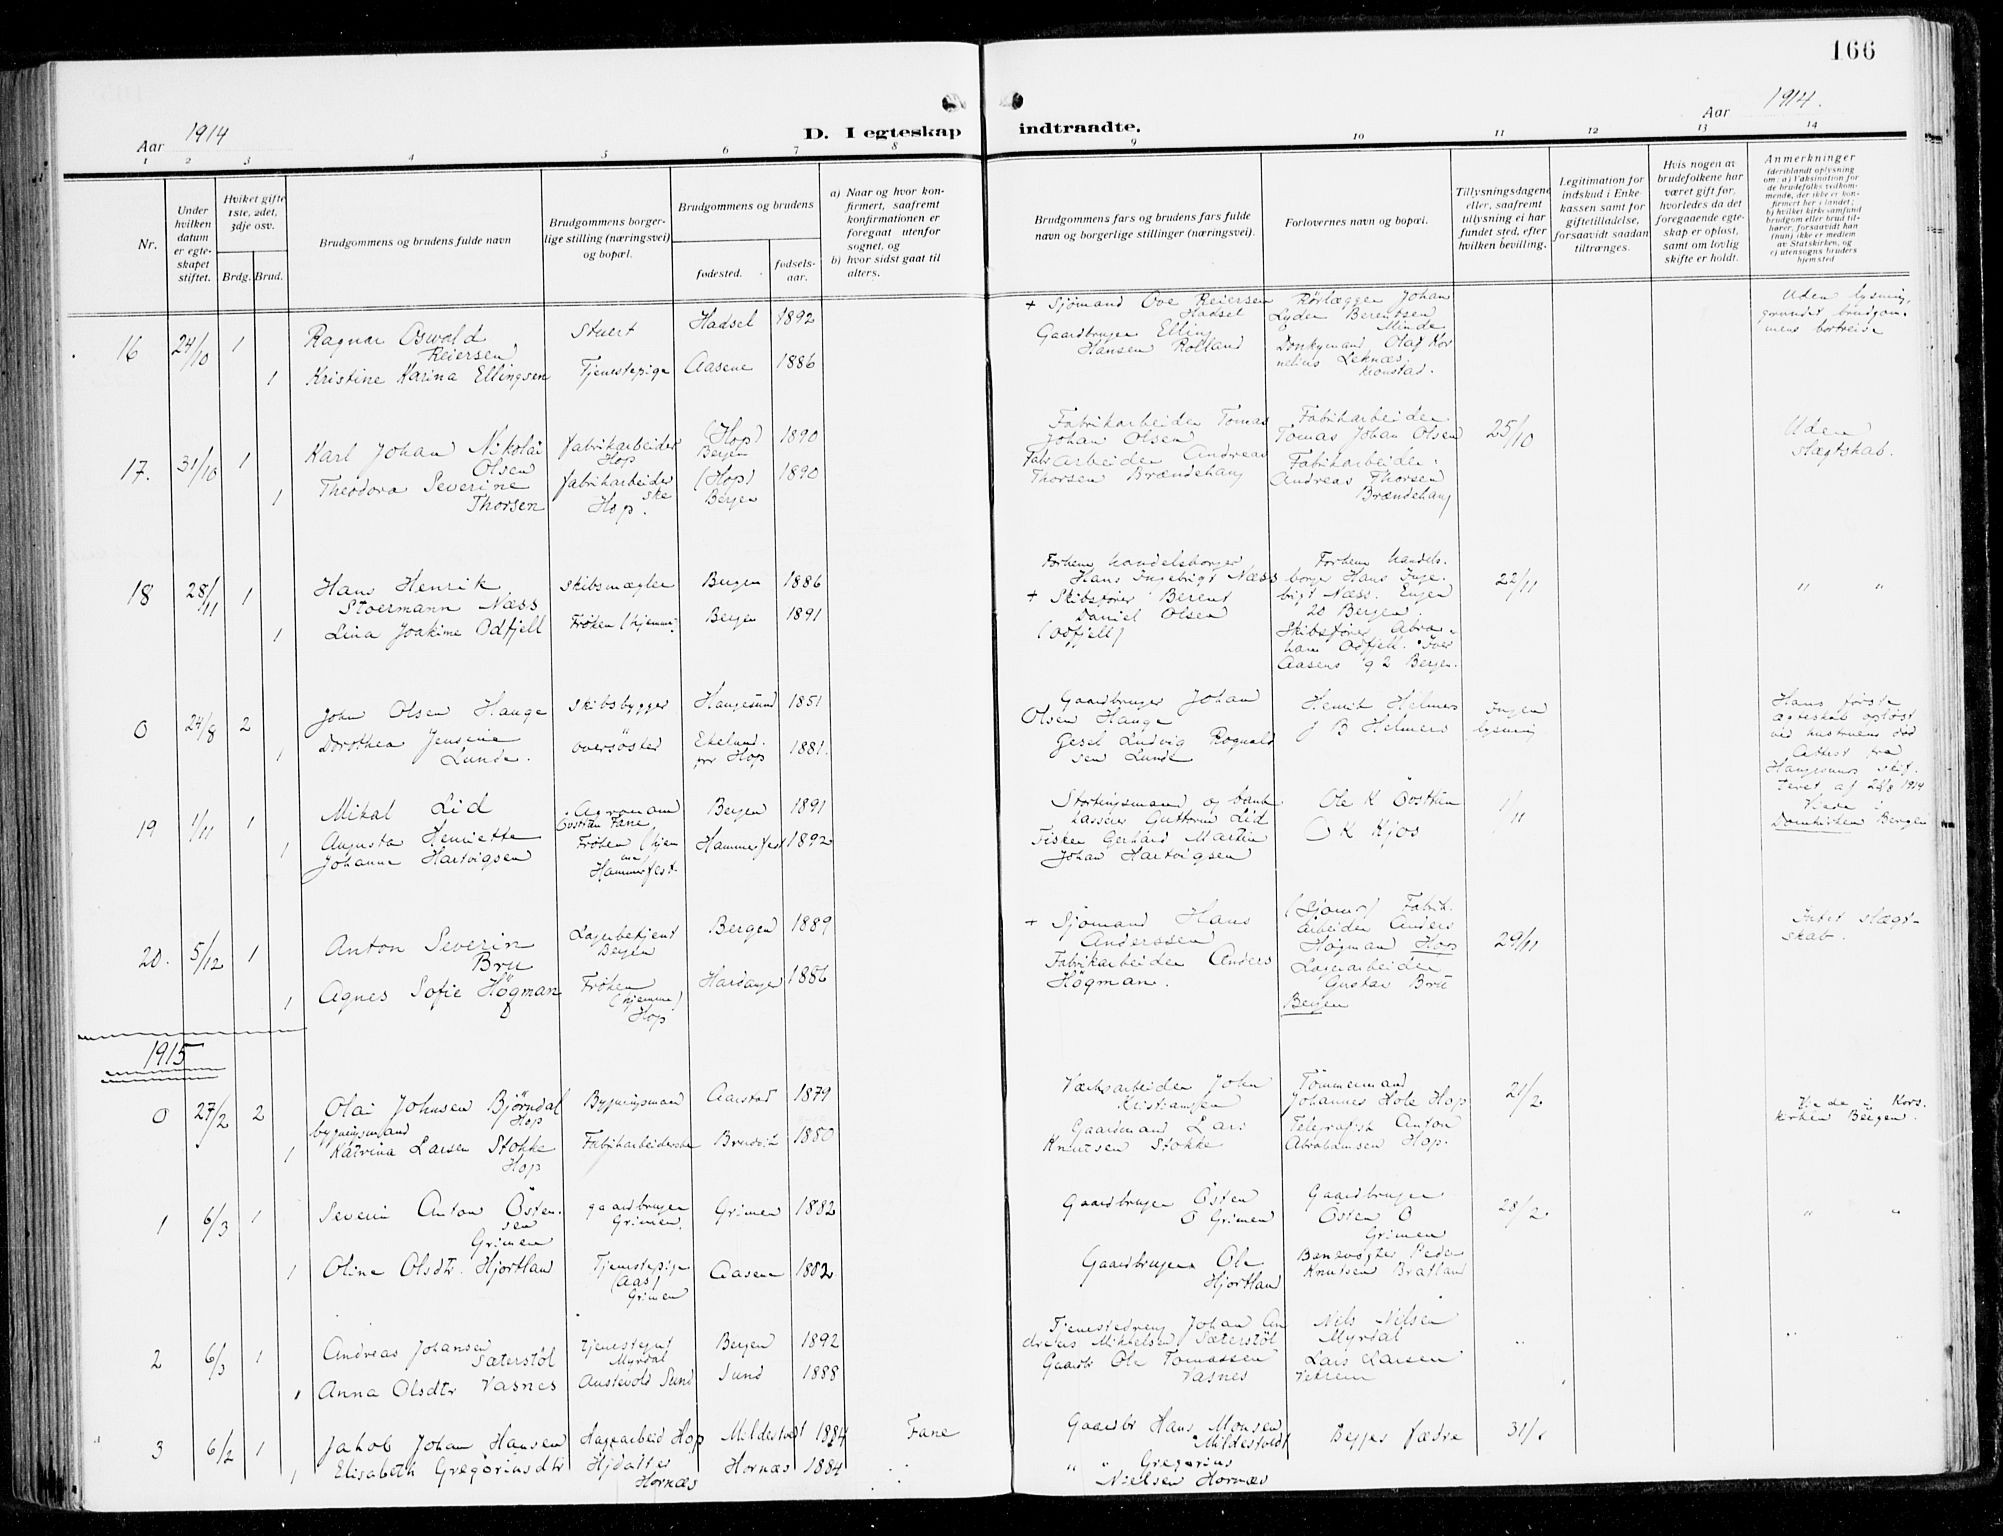 166
Aar 1914
D. I egteskap indtraadte.
Aar 1914.
1 2 3 4 5 6 7 8 9 10 11 12 13 14
Nr.
Under hvilken datum er egteskapet stiftet.
Hvilket gifte 1ste, 2det, 3dje osv.
Brdg. Brud.
Brudgommens og brudens fulde navn
Brudgommens borgerlige stilling (næringsvei) og bopæl.
Brudgommens og brudens
fødested.
fødselsaar.
a) Naar og hvor konfirmert, saafremt konfirmationen er foregaat utenfor sognet, og
b) hvor sidst gaat til alters.
Brudgommens fars og brudens fars fulde navn og borgerlige stillinger (næringsvei).
Forlovernes navn og bopæl.
Tillysningsdagene eller, saafremt tillysning ei har fundet sted, efter hvilken bevilling.
Legitimation for indskud i Enkekassen samt for giftetilladelse, forsaavidt saadan tiltrænges.
Hvis nogen av brudefolkene har været gift før, hvorledes da det foregaaende egteskap er opløst, samt om lovlig skifte er holdt.
Anmerkninger
(deriblandt oplysning om: a) Vaksination for de brudefolks vedkommende, der ikke er konfirmert her i landet; b) hvilket kirkesamfund brudgom eller brud tilhører, forsaavidt han (hun) ikke er medlem av Statskirken, og c) utensogns bruders hjemsted
16 24/10 1 Ragnar Oswald Reiersen Stuert Hadsel 1892
+ Sjømand Ove Reiersen Hadsel
Rörlægger Johan Lyder Berentsen Minde
Uden lysning, grundet brudgommens bortreise
1 Kristine Karina Ellingsen Tjenestepige Aasene 1886
Gaardbruger Elling Hansen Rolland
Donkymand Olaf Kornelius Leknæs. Kronstad.
17. 31/10 1 Karl Johan Nikolai Olsen fabrikarbeider Hop (Hop) Bergen 1890
Fabrikarbeider Tomas Johan Olsen
Fabrikarbeider Tomas Johan Olsen
25/10
Uden slægtskab.
1 Theodora Severine Thorsen fabrikarbeiderske Hop. (Hop) Bergen 1890
Fabr Arbeider Andreas Thorsen Brændehaug
Fabrikarbeider Andreas Thorsen Brændehaug
18 28/11 1 Hans Henrik Stoermann Næss Skibsmægler Bergen 1886
Forhenv handelsborger Hans Ingebrigt Næss
Forhenv handelsborger Hans Ingebrigt Næss. Engen 20 Bergen.
22/11
" "
1 Lina Joakime Odfjell Fröken (hjemme) Bergen 1891
+ Skibsfører Berent Daniel Olsen (Odfjell)
Skibsfører Abraham Odfjell. Øvre Aasens g 2 Bergen.
0 24/8 2 John Olsen Hauge Skibsbygger Haugesund 1851
Gaardbruger Johan Olsen Hauge
Henrik Helmers
J B Helmers
Ingen lysning
Hans første ægteskab opløst ved hustruens död Attest fra Haugesunds skifteret af 24/8 1914
1 Dorothea Jensine Lunde. oversöster Ekelund. pr Hop 1881.
Gesel Ludvig Rognaldsen Lunde
19 1/11 1 Mikal Lid Agronom Östtun Fane Bergen 1891
Stortingsmand og bankkasserer Guttorm Lid
Ole K Östtun
O K Kjos
1/11
Viede i Domkirken Bergen
1 Augusta Henriette Johanne Hartvigsen Fröken (hjemme) Hammerfest Hammerfest 1892
Fisker Gerhard Martin Johan Hartvigsen
20. 5/12 1 Anton Severin Bru Lagerbetjent Bergen Bergen 1889
+ Sjømand Hans Anderssen
Fabrikarbeider Anders Högman Hop
29/11
Intet slægtskab.
1 Agnes Sofie Högman Fröken (hjemme) Hop Hardanger 1886
Fabrikarbeider Anders Högman.
Lagerarbeider Gustav Bru Bergen
1915
0 27/2 2 Olai Johnsen Bjørndal Hop bygningsmand Bygningsmand Aarstad 1879
Værksarbeider John Kristiansen
Tömmermand Johannes Hole Hop
21/2
Viede i Korskirken Bergen.
1 Katrina Larsen Stokke Hop Fabrikarbeiderske Bruvik 1880
Gaardmand Lars Knutsen Stokke
Telegrafist Anton Abrahamsen Hop.
1 6/3 1 Severin Anton Östensen Grimen gaardbruger Grimen. Grimen 1882
Gaardbruger Östen O Grimen
Gaardbruger Östen O Grimen
28/2
" "
1 Oline Olsdtr. Hjortland Tjenestepige (Aas) Grimen Aasene 1882
Gaardbruger Ole Hjortland
Banevogter Peder Knutsen Bratland
2 6/3 1 Andreas Johansen Sæterstöl tjenestegut Myrdal Bergen 1892
Tjenestedreng Johan Andreas Mikkelsen Sæterstöl
Nils Nilsen Myrdal
" " "
1 Anna Olsdtr Vasnes Austevold Sund Sund 1888
Gaardbr Ole Tomassen Vasnes
Lars Larsen
3 6/2 1 Jakob Johan Hansen Hagearbeid Hop Mildestvedt 1884 Fane
Gaardbr Hans Monsen Mildestvedt
Begges fædre
31/1
1 Elisabeth Gregoriusdtr Hornæs Hornæs 1884 "
" " Gregorius Nielsen Hornæs